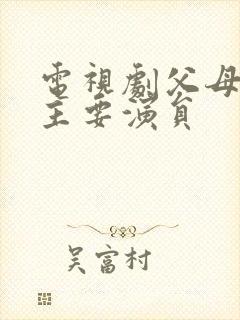 電視劇父母
主要演員
吴富村